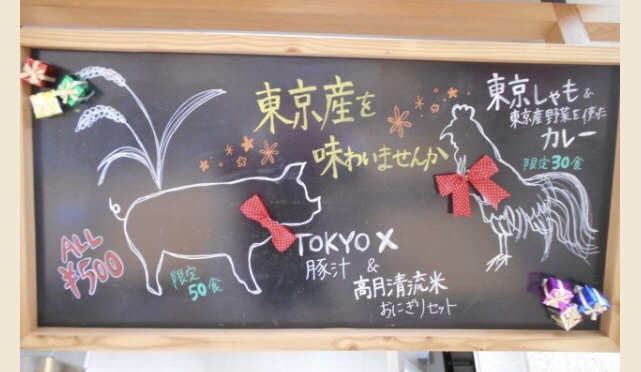 東京産を
味わいませんか
東京しゃも&
東京産野菜を使った
カレー
限定30食
ALL
¥500
限定
50食
TOKYO X
豚汁 &
高月清流米
おにぎりセット